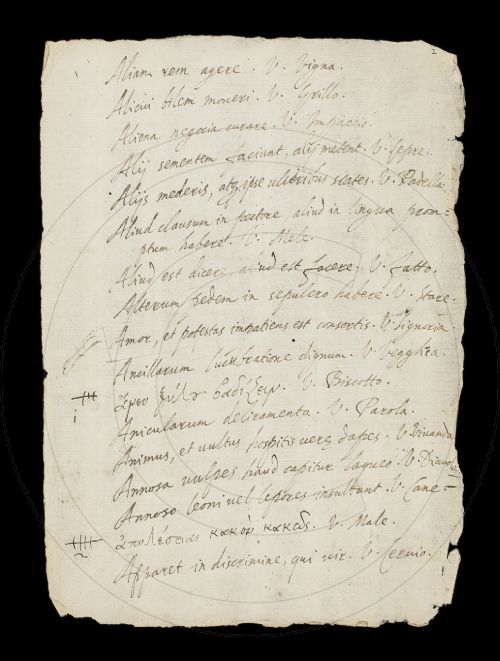 2
Aliam rem agere. V. Vigna.
Alicui bilem moueri. V. Grillo.
Aliena negocia curare. V. Impaccio.
Alij sementem faciunt, alij metent. V. Lepre.
Alijs mederis, atq; ipse ulceribus scates. V. Padella.
Aliud clausum in pectore, aliud in lingua prom=
ptum habere. V. Mele.
Aliud est dicere aliud est facere. V. Fatto.
Alterum pedem in sepulcro habere. V. Stare.
Amor, et potestas impatiens est consortis. V. Signoria.
Ancillarum lucubratione dignum. V. Vegghia.
ἄνευ ξύλου βαδίζειν. V. Biscotto.
Anicularum deliramenta. V. Parola.
Animus, et uultus hospitis uere dapes. V. Viuanda
Annosa uulpes haud capitur laqueo. V.
Annoso leoni uel lepores insultant. V. Cane
κακὸν κακῶς. V. Male.
Apparet in discrimine, qui uir. V. Ceruio.